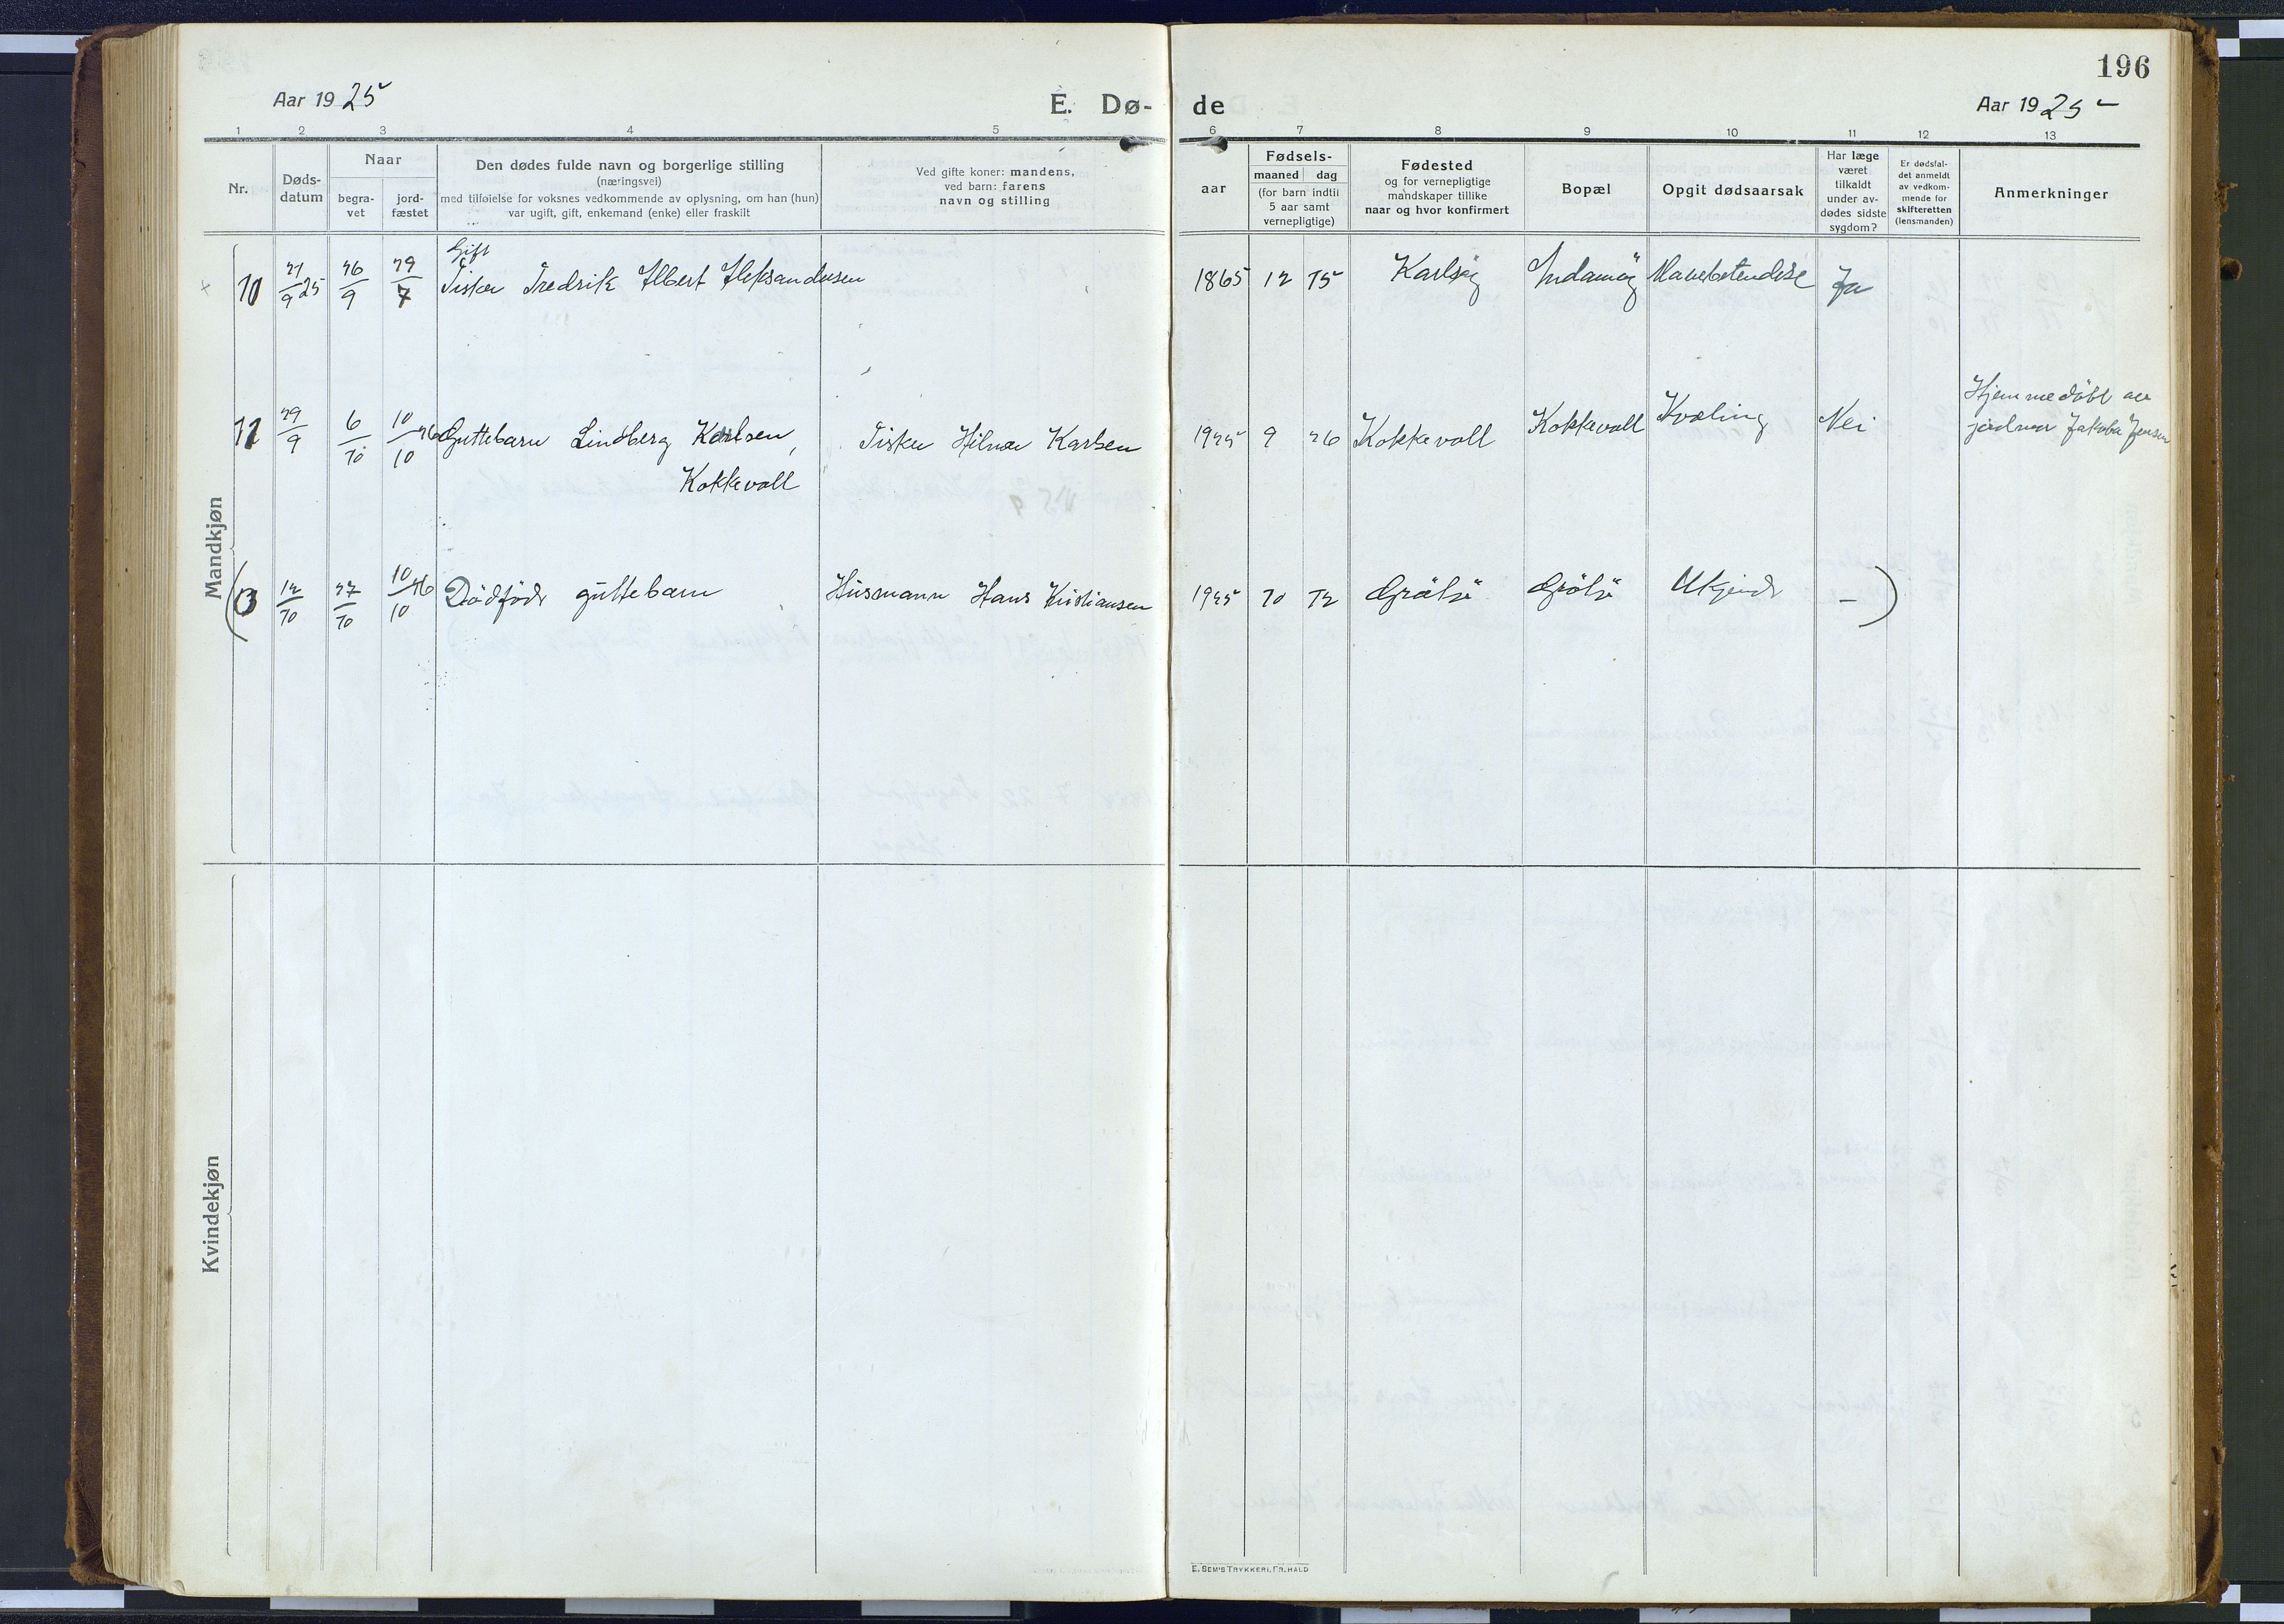 196
Aar 1925
E. Dø-
de
Aar 1925
1 2 3 4 5 6 7 8 9 10 11 12 13
Nr.
Døds-
datum
Naar
begra-
vet
jord-
fæstet
Den dødes fulde navn og borgerlige stilling
(næringsvei)
med tilføielse for voksnes vedkommende av oplysning, om han (hun)
var ugift, gift, enkemand (enke) eller fraskilt
Ved gifte koner: mandens,
ved barn: farens
navn og stilling
aar
Fødsels-
maaned dag
(for barn indtil
5 aar samt
vernepligtige)
Fødested
og for vernepligtige
mandskaper tillike
naar og hvor konfirmert
Bopæl
Opgit dødsaarsak
Har læge
været
tilkaldt
under av-
dødes sidste
sygdom?
Er dødsfal-
det anmeldt
av vedkom-
mende for
skifteretten
(lensmanden)
Anmerkninger
Mandkjøn
Gift
10 21/9 25 26/9 29/7 Fisker Fredrik Albert Aleksandersen 1865 12 15 Karlsøy Ja
11 29/9 6/10 10/10 26 Guttebarn Lindberg Karlsen, Fisker Hilmar Karlsen 1925 9 26 Kokkevoll Kokkevoll Kvæling Nei Hjemmedöbt av
Kokkevoll jordmor Jakoba Jensen
12/10 27/10 10/10 26 Dödfödt guttebarn Husmann Hans Kristiansen 1925 10 12 Grötö Grötö Ukjendt –)
Kvindekjøn
E. SEM'S TRYKKERI, FR.HALD